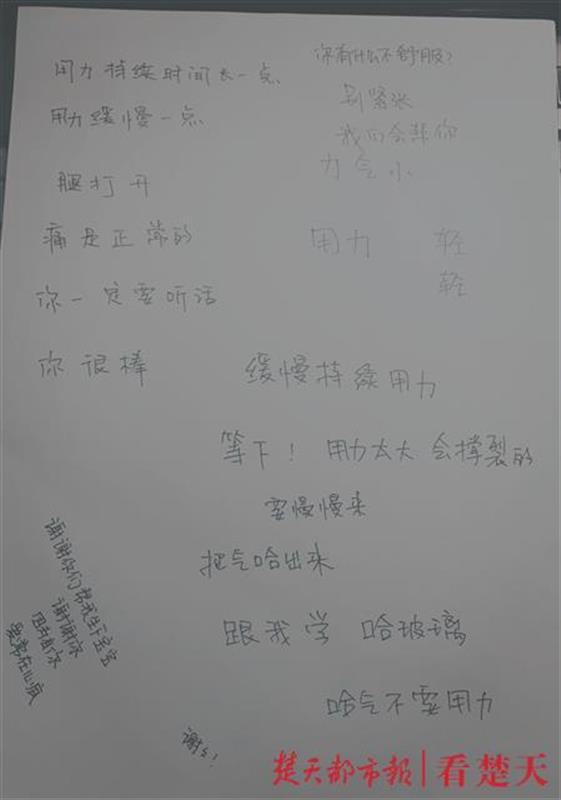 用力持续时间长一点
用力缓慢一点
腿打开
痛是正常的
你一定要听话
你很棒
你有什么不舒服?
别紧张
我们会帮你
力气小
用力 轻
轻
缓慢持续用力
等下! 用力太大 会撑裂的
要慢慢来
把气哈出来
跟我学 哈玻璃
哈气不要用力
谢谢你们帮我生下宝宝
谢谢你
因为有你
爱常在心底
谢谢!
楚天都市报|看楚天